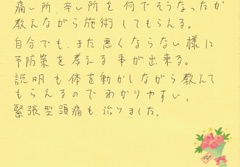 痛い所、辛い所を何でそうなったか
教えながら施術してもらえる。
自分でも、また悪くならない様に
予防策を考える事が出来る。
説明も体を動かしながら教えて
もらえるのでわかりやすい。
緊張型頭痛も治りました。